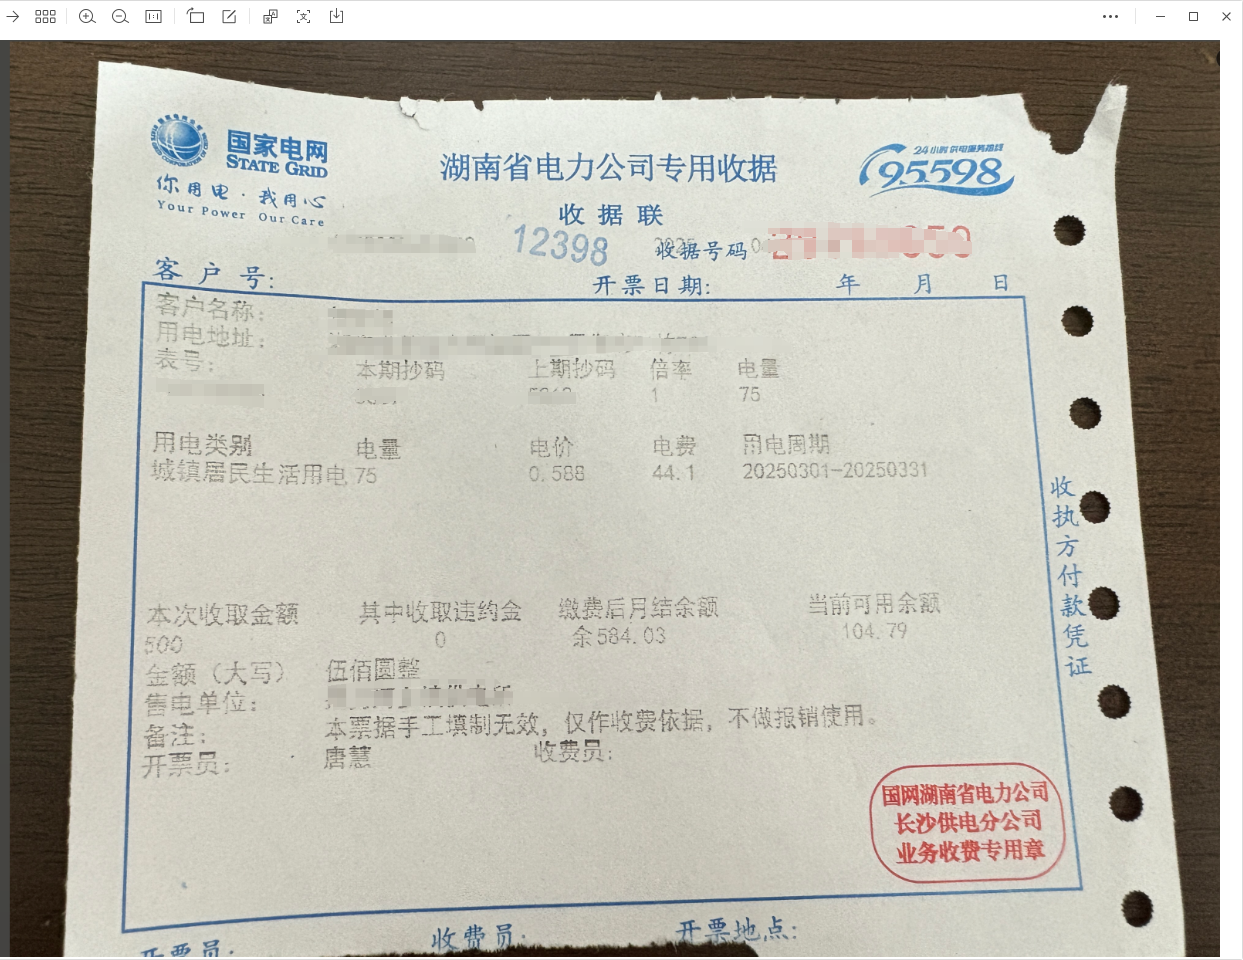 国家电网
STATE GRID
你用电·我用心
Your Power Our Care
湖南省电力公司专用收据
24小时供电服务热线
95598
收据联
12398
收据号码
客户号:
开票日期: 年 月 日
客户名称:
用电地址:
表号: 本期抄码 上期抄码 倍率 电量
1 75
用电类别 电量 电价 电费 用电周期
城镇居民生活用电 75 0.588 44.1 20250301-20250331
收执方付款凭证
本次收取金额 其中收取违约金 缴费后月结余额 当前可用余额
500 0 余584.03 104.79
金额（大写） 伍佰圆整
售电单位:
备注: 本票据手工填制无效，仅作收费依据，不做报销使用。
开票员: 唐慧 收费员:
国网湖南省电力公司
长沙供电分公司
业务收费专用章
开票员: 收费员: 开票地点: